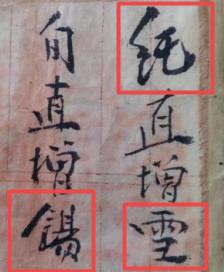 纯直增雪
自直增锡